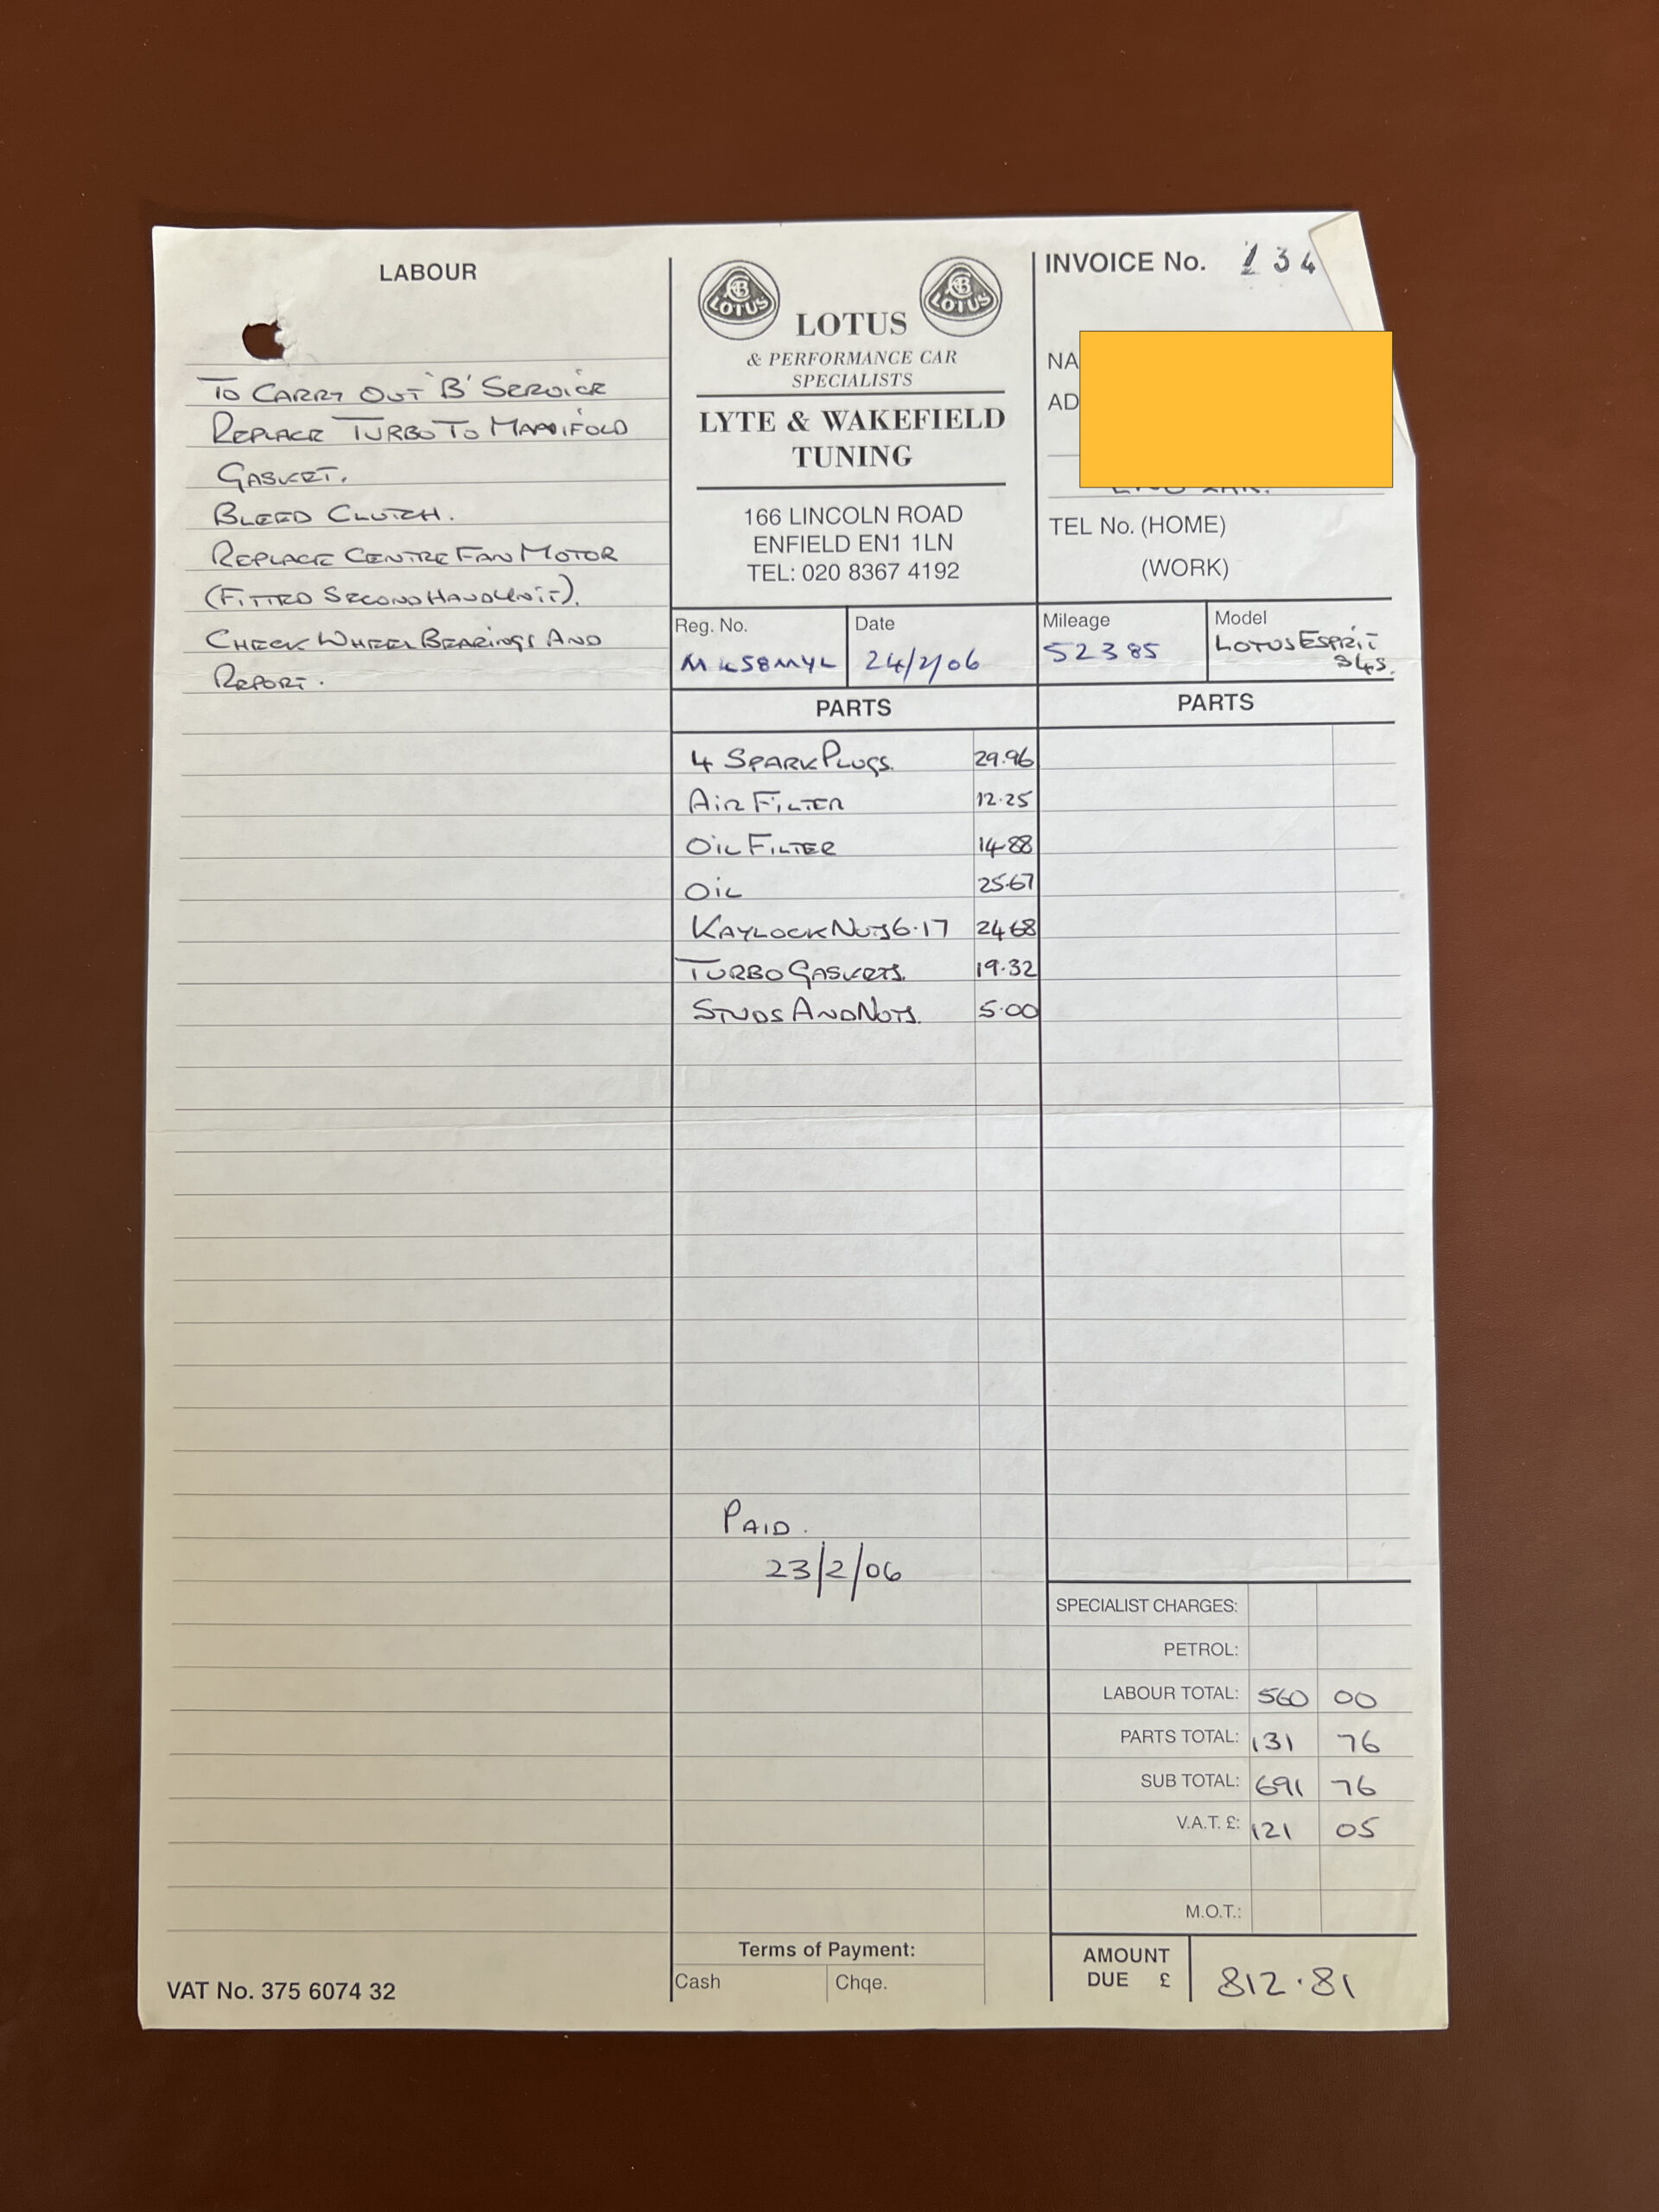 LABOUR
TO CARRY OUT 'B' SERVICE
REPLACE TURBO TO MANIFOLD
GASKET.
BLEED CLUTCH.
REPLACE CENTRE FAN MOTOR
(FITTED SECOND HAND UNIT).
CHECK WHEEL BEARINGS AND
REPORT.
VAT No. 375 6074 32
LOTUS
LOTUS
LOTUS
& PERFORMANCE CAR
SPECIALISTS
LYTE & WAKEFIELD
TUNING
166 LINCOLN ROAD
ENFIELD EN1 1LN
TEL: 020 8367 4192
INVOICE No. 134
NA
AD
TEL No. (HOME)
(WORK)
Reg. No.
M458MYL
Date
24/2/06
Mileage
52385
Model
LOTUS ESPRIT
S4S.
PARTS
PARTS
4 SPARK PLUGS. 29.96
AIR FILTER 12.25
OIL FILTER 14.88
OIL 25.67
KAYLOCK NUTS 6.17 24.68
TURBO GASKETS. 19.32
STUDS AND NUTS. 5.00
PAID.
23/2/06
Terms of Payment:
Cash
Chqe.
SPECIALIST CHARGES:
PETROL:
LABOUR TOTAL: 560 00
PARTS TOTAL: 131 76
SUB TOTAL: 691 76
V.A.T. £: 121 05
M.O.T.:
AMOUNT
DUE £ 812.81